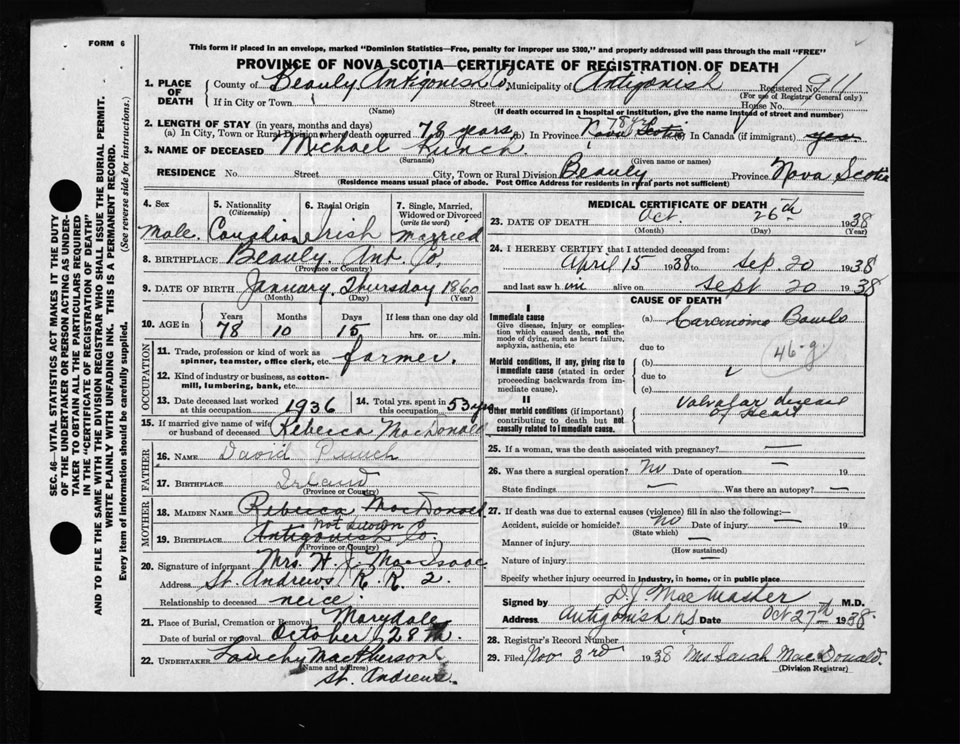 FORM 6
This form if placed in an envelope, marked "Dominion Statistics—Free, penalty for improper use $300," and properly addressed will pass through the mail "FREE"
PROVINCE OF NOVA SCOTIA—CERTIFICATE OF REGISTRATION OF DEATH
1. PLACE OF DEATH County of Beauly Antigonish Co Municipality of Antigonish Registered No. 911
(For use of Registrar General only)
If in City or Town Street House No.
(Name) (If death occurred in a hospital or institution, give the name instead of street and number)
2. LENGTH OF STAY (in years, months and days) 78 yrs
(a) In City, Town or Rural Division where death occurred 78 years (b) In Province Nova Scotia (c) In Canada (if immigrant) yes
3. NAME OF DECEASED Michael
(Surname) (Given name or names)
RESIDENCE No. Street City, Town or Rural Division Beauly Province Nova Scotia
(Residence means usual place of abode. Post Office Address for residents in rural parts not sufficient)
4. Sex 5. Nationality (Citizenship) 6. Racial Origin 7. Single, Married, Widowed or Divorced (write the word)
Male. Canadian Irish Married
8. BIRTHPLACE Beauly. Ant. Co,
(Province or Country)
9. DATE OF BIRTH January Thursday 1860
(Month) (Day) (Year)
10. AGE in Years Months Days If less than one day old
78 10 15 hrs. or min.
OCCUPATION
11. Trade, profession or kind of work as spinner, teamster, office clerk, etc. farmer.
12. Kind of industry or business, as cotton-mill, lumbering, bank, etc.
13. Date deceased last worked at this occupation 1936 14. Total yrs. spent in this occupation 53 yrs
15. If married give name of wife or husband of deceased Rebecca MacDonald
FATHER
16. NAME David Punch
17. BIRTHPLACE Irland
(Province or Country)
MOTHER
18. MAIDEN NAME Rebecca MacDonald
Not known
19. BIRTHPLACE Antigonish Co.
(Province or Country)
20. Signature of informant Mrs. H. J. MacIsaac
Address St. Andrews R. R 2.
Relationship to deceased neice
21. Place of Burial, Cremation or Removal Marydale
Date of burial or removal October 28th.
22. UNDERTAKER Lauchy MacPherson
(Name and address)
St. Andrews.
MEDICAL CERTIFICATE OF DEATH
23. DATE OF DEATH Oct. 26th 1938
(Month) (Day) (Year)
24. I HEREBY CERTIFY that I attended deceased from:
April 15 1938 to Sep. 20 1938
and last saw him alive on Sept 20 1938
CAUSE OF DEATH
I
Immediate cause
Give disease, injury or complication which caused death, not the mode of dying, such as heart failure, asphyxia, asthenia, etc
(a) Carcinoma Bowels
due to
46-g
Morbid conditions, if any, giving rise to immediate cause (stated in order proceeding backwards from immediate cause).
(b)
due to
(c)
II
Other morbid conditions (if important) contributing to death but not causally related to immediate cause.
Valvular disease of heart
25. If a woman, was the death associated with pregnancy? —
26. Was there a surgical operation? No Date of operation — 19
State findings — Was there an autopsy? —
27. If death was due to external causes (violence) fill in also the following:—
Accident, suicide or homicide? No Date of injury — 19
(State which)
Manner of injury —
(How sustained)
Nature of injury —
Specify whether injury occurred in industry, in home, or in public place
Signed by D. J. MacMaster M.D.
Address Antigonish NS Date Oct 27th 1938
28. Registrar's Record Number
29. Filed Nov 3rd 1938 Mrs Sarah MacDonald.
(Division Registrar)
SEC. 46—VITAL STATISTICS ACT MAKES IT THE DUTY
OF THE UNDERTAKER OR PERSON ACTING AS UNDERTAKER TO OBTAIN ALL THE PARTICULARS REQUIRED
IN THE "CERTIFICATE OF REGISTRATION OF DEATH"
AND TO FILE THE SAME WITH THE DIVISION REGISTRAR WHO SHALL ISSUE THE BURIAL PERMIT.
WRITE PLAINLY WITH UNFADING INK. THIS IS A PERMANENT RECORD.
Every item of information should be carefully supplied. (See reverse side for instructions.)